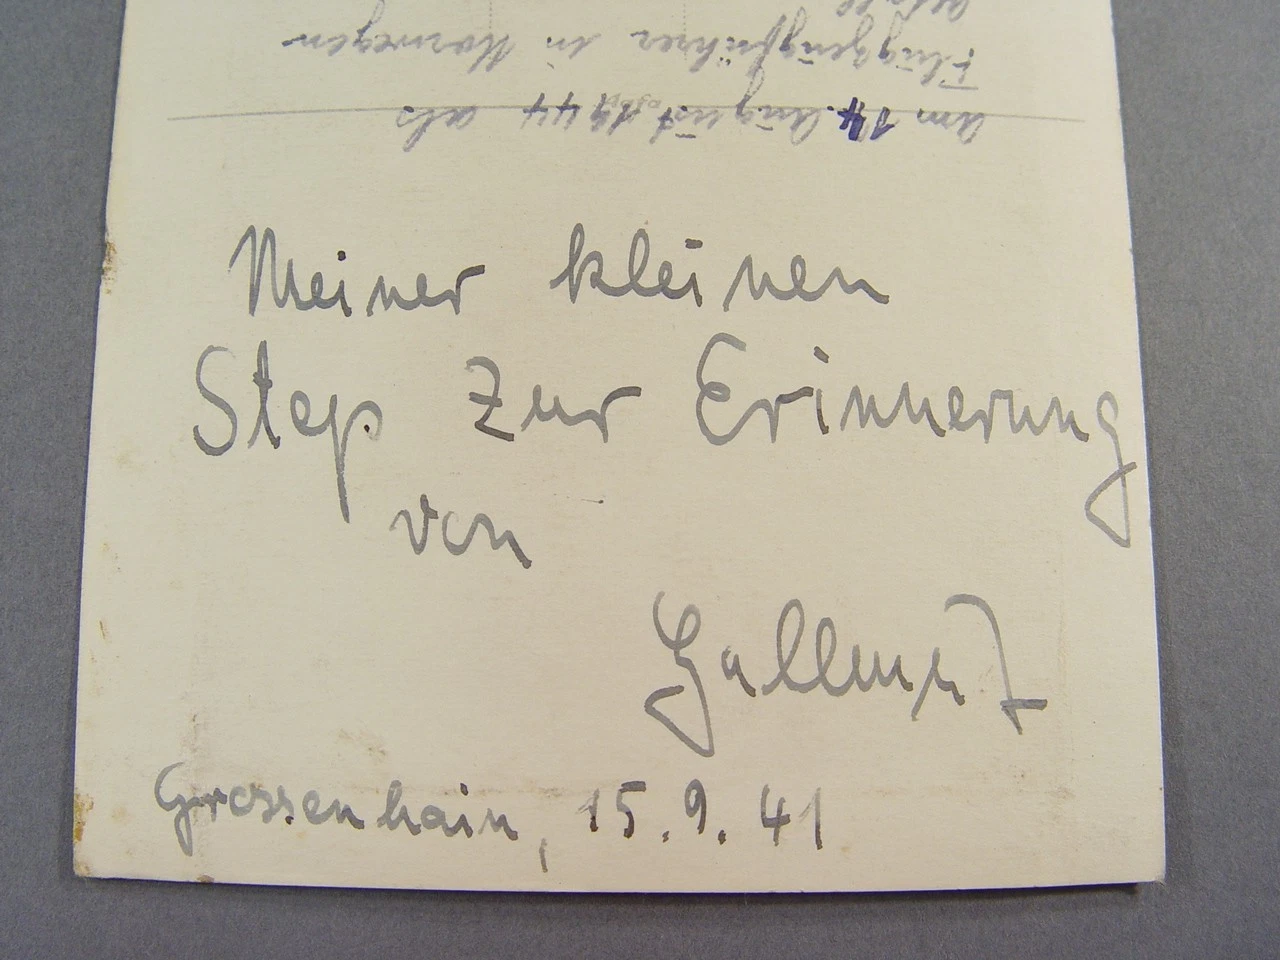 am 14. August 1944 als
Flugzeugführer in Norwegen
Meiner kleinen
Step zur Erinnerung
von
Grossenhain, 15.9.41